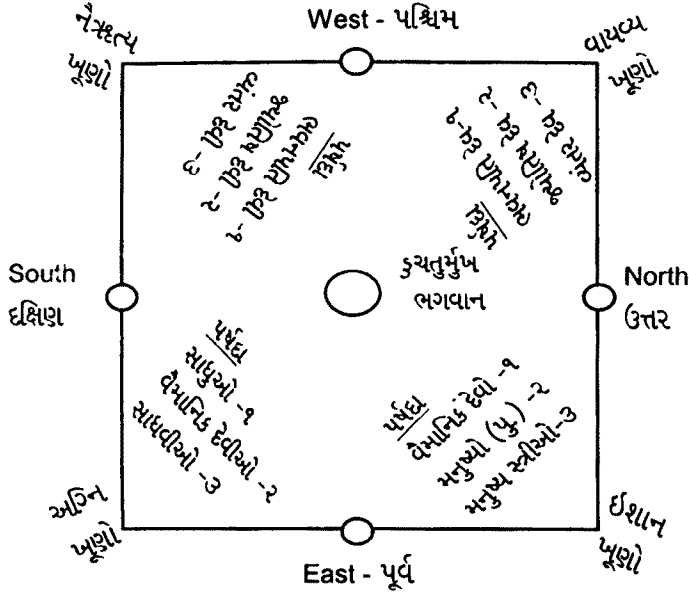 નૈઋત્ય
ખૂણો
West - પશ્ચિમ
વાયવ્ય
ખૂણો
પર્ષદા
ભવનપતિ દેવી -૧
જ્યોતિષ દેવી -૨
વ્યંતર દેવી -૩
પર્ષદા
ભવનપતિ દેવ-૧
જ્યોતિષ દેવ -૨
વ્યંતર દેવ -૩
South
દક્ષિણ
કુચતુર્મુખ
ભગવાન
North
ઉત્તર
પર્ષદા
સાધુઓ -૧
વૈમાનિક દેવીઓ -૨
સાધવીઓ -૩
પર્ષદા
વૈમાનિક દેવો -૧
મનુષ્યો (પુ.) -૨
મનુષ્ય સ્ત્રીઓ-૩
અગ્નિ
ખૂણો
East - પૂર્વ
ઇશાન
ખૂણો